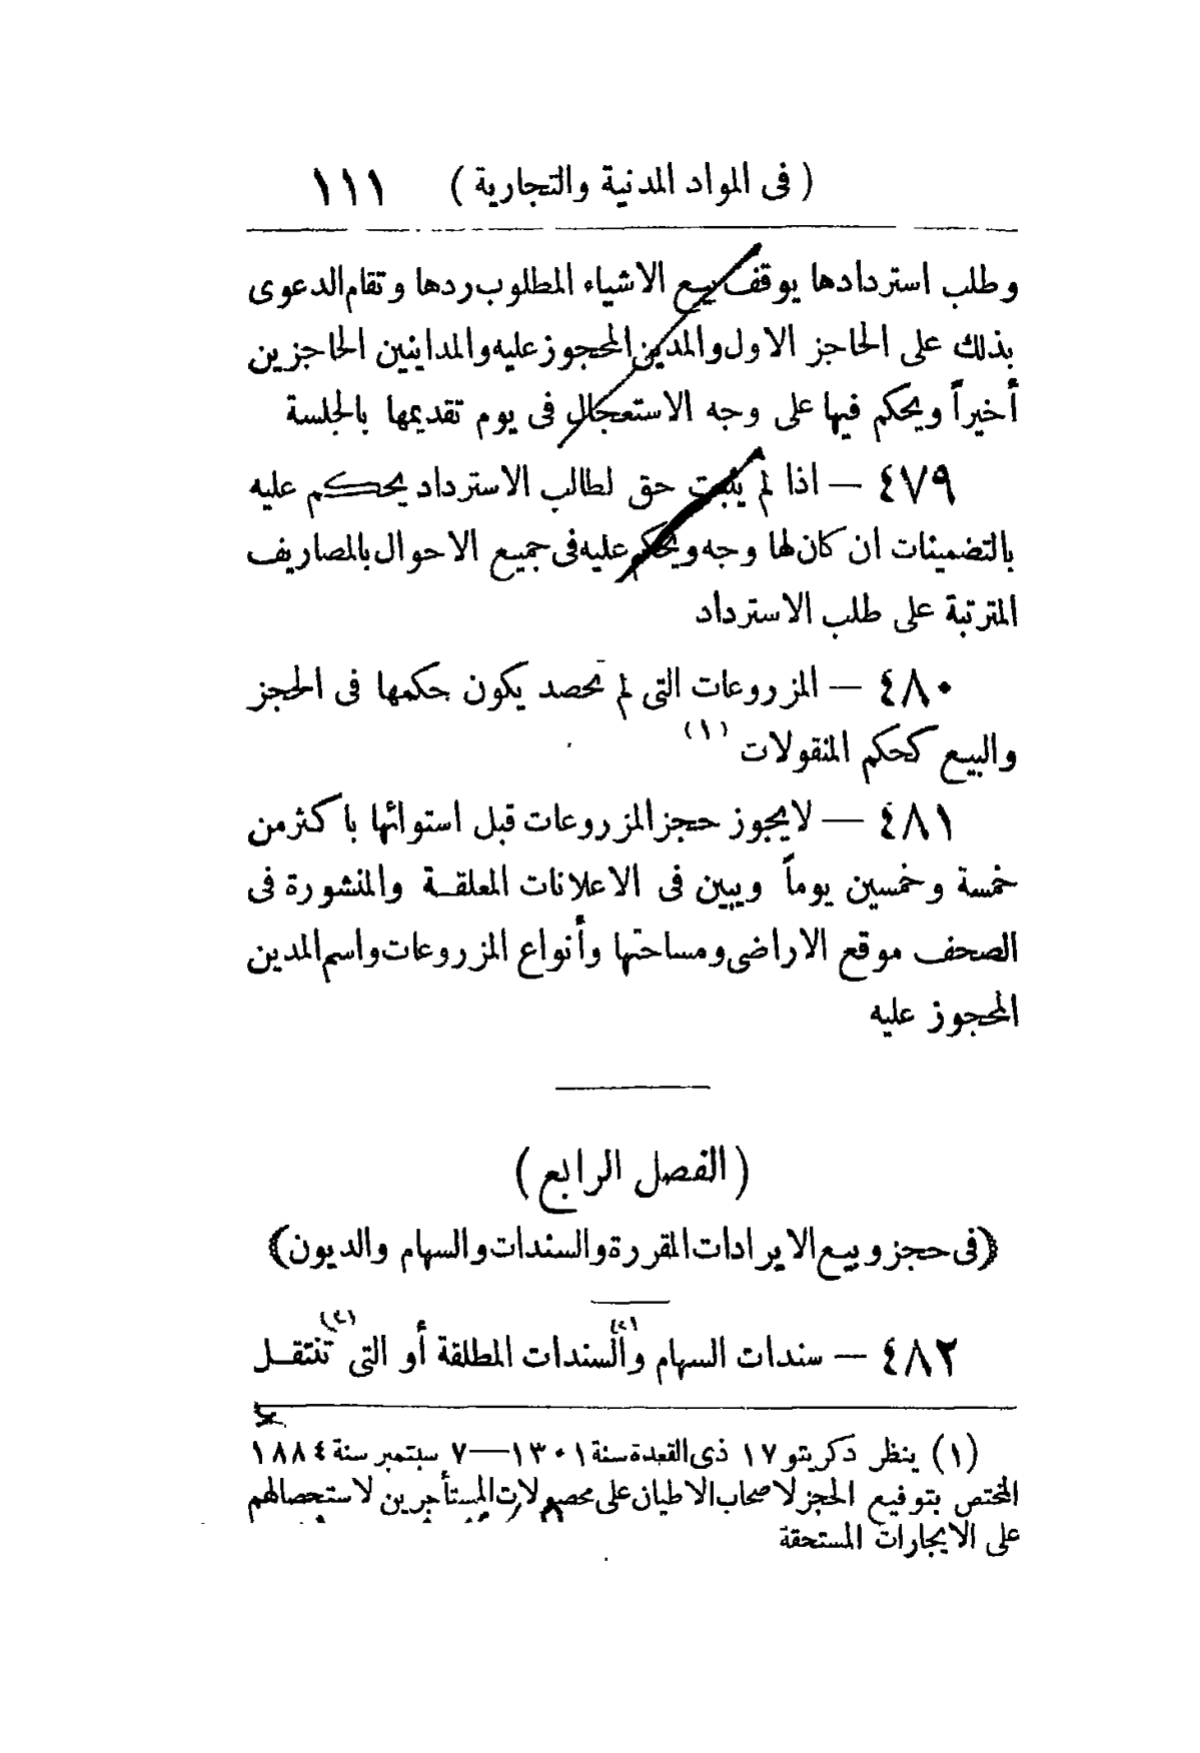 ( فى المواد المدنية والتجارية ) ١١١
وطلب استردادها يوقف بيع الاشياء المطلوب ردها وتقام الدعوى
بذلك على الحاجز الاول والمدين المحجوز عليه والمداينين الحاجزين
أخيراً ويحكم فيها على وجه الاستعجال فى يوم تقديمها بالجلسة
٤٧٩ — اذا لم يثبت حق لطالب الاسترداد يحكم عليه
بالتضمينات ان كان لها وجه ويحكم عليه فى جميع الاحوال بالمصاريف
المترتبة على طلب الاسترداد
٤٨٠ — المزروعات التى لم تحصد يكون حكمها فى الحجز
والبيع كحكم المنقولات (١)
٤٨١ — لا يجوز حجز المزروعات قبل استوائها باكثر من
خمسة وخمسين يوماً ويبين فى الاعلانات المعلقة والمنشورة فى
الصحف موقع الاراضى ومساحتها وأنواع المزروعات واسم المدين
المحجوز عليه
( الفصل الرابع )
(فى حجز وبيع الايرادات المقررة والسندات والسهام والديون)
٤٨٢ — سندات السهام والسندات المطلقة أو التى تنتقل
(١) ينظر دكريتو ١٧ ذى القعدة سنة ١٣٠١ — ٧ سبتمبر سنة ١٨٨٤
المختص بتوقيع الحجز لاصحاب الاطيان على محصولات المستأجرين لاستحصالهم
على الايجارات المستحقة